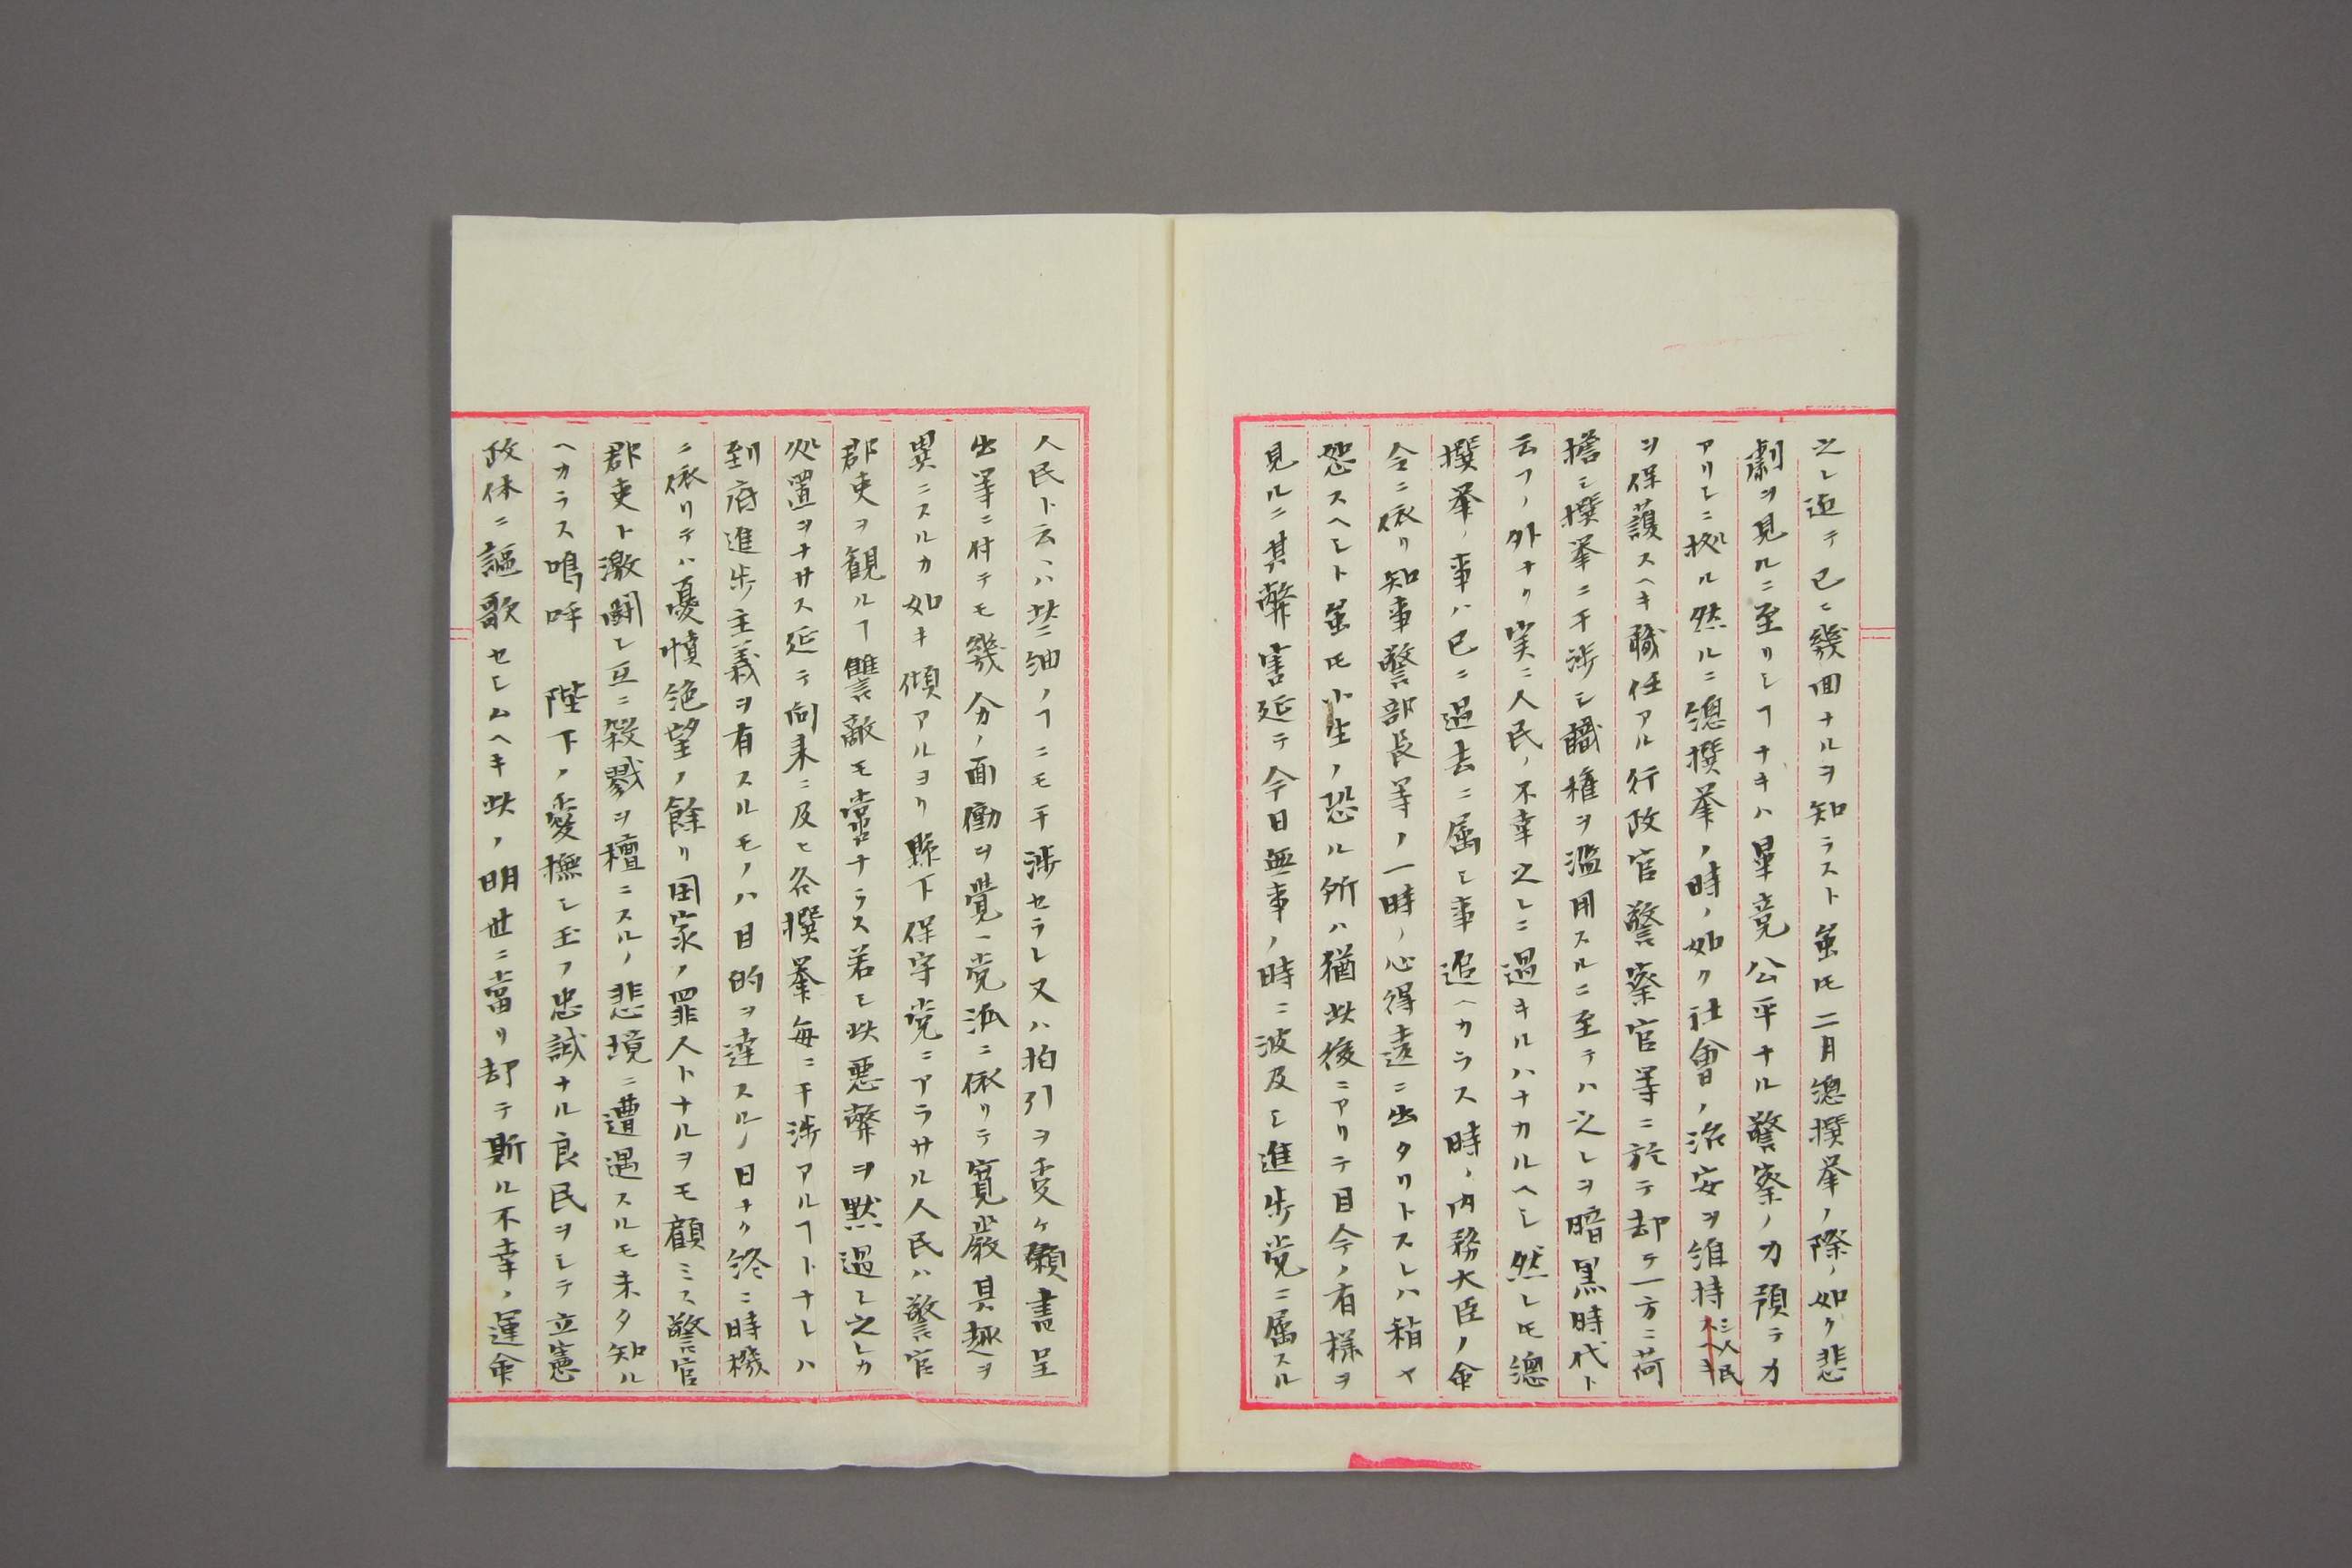 之レ迄テ已ニ幾回ナルヲ知ラスト雖𪜈二月總撰挙ノ際ノ如ク悲
劇ヲ見ルニ至リシヿナキハ畢竟公平ナル警察ノ力預テ力
アリシニ拠ル然ルニ總撰挙ノ時ノ如ク社會ノ治安ヲ維持シ人民
ヲ保護スヘキ職任アル行政官警察官等ニ於テ却テ一方ニ荷
擔シ撰挙ニ干渉シ職権ヲ濫用スルニ至テハ之レヲ暗黒時代ト
云フノ外ナク実ニ人民ノ不幸之レニ過キルハナカルヘシ然レ𪜈總
撰挙ノ事ハ已ニ過去ニ属シ事追ヘカラス時ノ内務大臣ノ命
令ニ依リ知事警部長等ノ一時ノ心得違ニ出タリトスレハ稍々
恕スヘシト雖𪜈小生ノ恐ル所ハ猶此後ニアリテ目今ノ有様ヲ
見ルニ其弊害延テ今日無事ノ時ニ波及シ進歩党ニ属スル
人民ト云ヘハ些細ノヿニモ干渉セラレ又ハ拍引ヲ受ケ願書呈
出等ニ付テモ幾分ノ面働ヲ覚ヘ党派ニ依リテ寛厳其趣ヲ
異ニスルカ如キ傾アルヨリ縣下保守党ニアラサル人民ハ警官
郡吏ヲ観ルヿ讐敵モ啻ナラス若シ此悪弊ヲ黙過シ之レカ
処置ヲナサス延テ向来ニ及ヒ各撰挙毎ニ干渉アルヿトナレハ
到底進歩主義ヲ有スルモノハ目的ヲ達スルノ日ナク終ニ時機
ニ依リテハ憂憤絶望ノ餘リ国家ノ罪人トナルヲモ顧ミス警官
郡吏ト激闘シ互ニ殺戮ヲ檀ニスルノ悲境ニ遭遇スルモ未タ知ル
ヘカラス嗚呼 陛下ノ愛撫シ玉フ忠誠ナル良民ヲシテ立憲
政体ニ謳歌セシムヘキ此ノ明世ニ當リ却テ斯ル不幸ノ運命